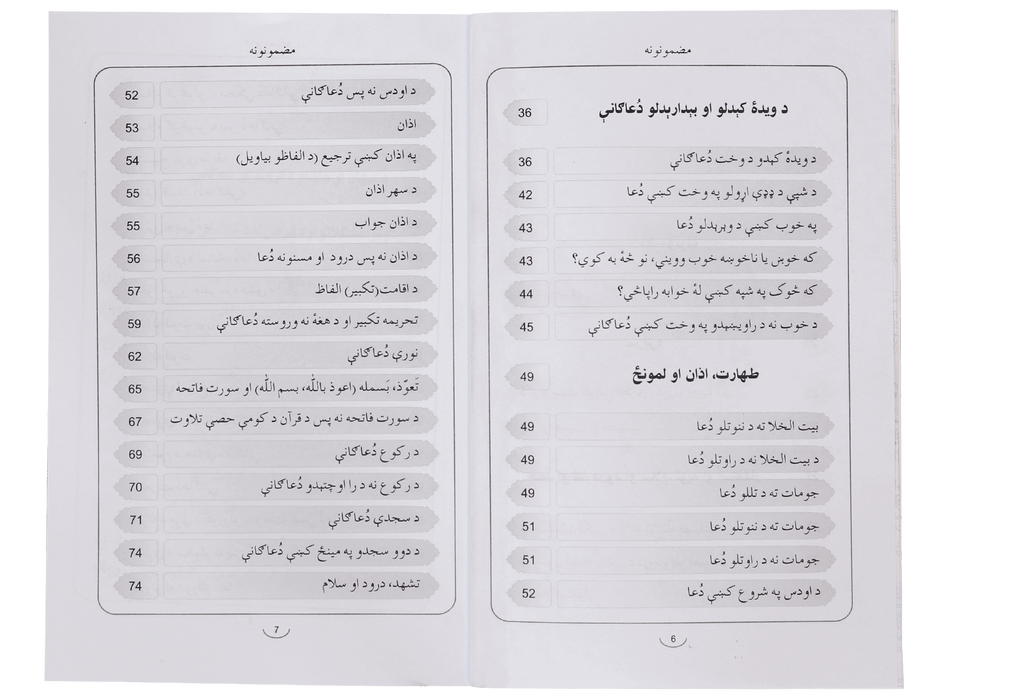 مضمونونه
د ویدۀ کېدلو او بېدارېدلو دُعاګانې 36
د ویدۀ کېدو د وخت دُعاګانې 36
د شپې د ډډې اړولو په وخت کښې دُعا 42
په خوب کښې د وېرېدلو دُعا 43
که خوښ یا ناخوښه خوب وویني، نو څۀ به کوي؟ 43
که څوک په شپه کښې لۀ خوابه راپاڅي؟ 44
د خوب نه د راویښېدو په وخت کښې دُعاګانې 45
طهارت، اذان او لمونځ 49
بیت الخلا ته د ننوتلو دُعا 49
د بیت الخلا نه د راوتلو دُعا 49
جومات ته د تللو دُعا 49
جومات ته د ننوتلو دُعا 51
جومات نه د راوتلو دُعا 51
د اودس په شروع کښې دُعا 52
6
مضمونونه
د اودس نه پس دُعاګانې 52
اذان 53
په اذان کښې ترجیع (د الفاظو بیاویل) 54
د سهر اذان 55
د اذان جواب 55
د اذان نه پس درود او مسنونه دُعا 56
د اقامت(تکبیر) الفاظ 57
تحریمه تکبیر او د هغۀ نه وروسته دُعاګانې 59
نورې دُعاګانې 62
تَعوّذ، بَسمله (اعوذ بالله، بسم الله) او سورت فاتحه 65
د سورت فاتحه نه پس د قرآن د کومې حصې تلاوت 67
د رکوع دُعاګانې 69
د رکوع نه د را اوچتېدو دُعاګانې 70
د سجدې دُعاګانې 71
د دوو سجدو په مینځ کښې دُعاګانې 74
تشهد، درود او سلام 74
7